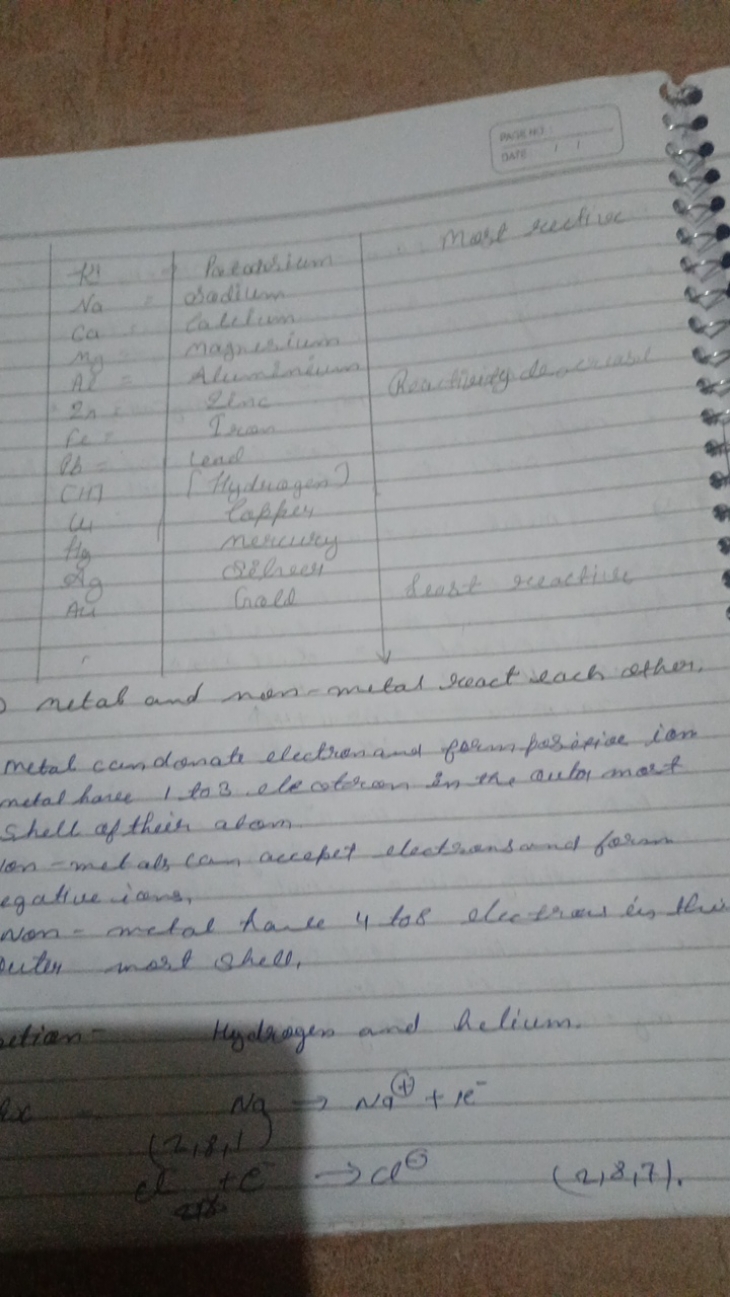 PAGE NO :
DATE : / /
Most reective
K = Patatssium
Na = Sodium
Ca = Calcium
Mg = Magnesium
Al = Aluminium
Reactivity decreases
Zn = Zinc
Fe = Iron
Pb = Lead
[H] [Hydrogen]
Cu Copper
Hg Mercury
Ag Silver
Au Gold
Least reactive
metal and non-metal react each other.
metal can donate electron and form positive ion
metal have 1 to 3 electron in the outer most
shell of their atom
on-metals can accept electrons and form
egative ions,
Non-metal have 4 to 8 electron in the
outer most shell,
Hydrogen and helium.
Ex Na → Na⊕ + 1e⁻
(2,8,1)
Cl + e⁻ → Cl⊖ (2,8,7).